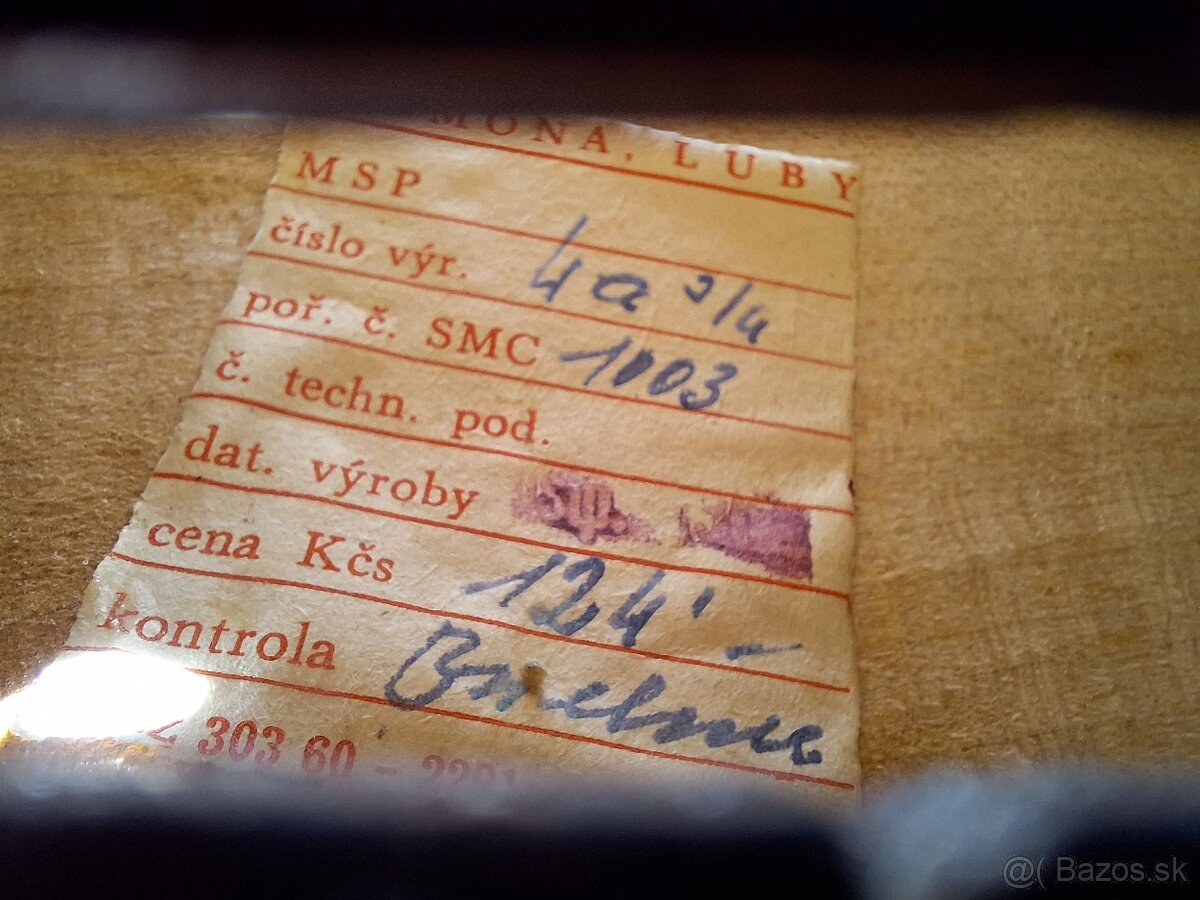 MONA, LUBY
MSP
číslo výr. 4a 3/4
poř. č. SMC 1003
č. techn. pod.
dat. výroby
cena Kčs 124'-
kontrola
303 60 -
@( Bazos.sk